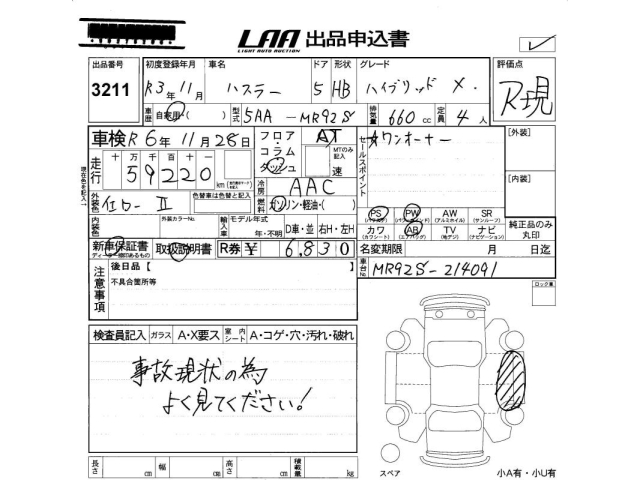 LAA 出品申込書
LIGHT AUTO AUCTION
出品番号 初度登録年月 車名 ドア 形状 グレード 評価点
3211 R3年11月 ハスラー 5 HB ハイブリッド X. R現
車歴 自家用・( ) 型式 5AA-MR92S 排気量 660cc 定員 4人
車検 R6年11月28日 フロア・コラム ダッシュ AT MTのみ記入 速 セールスポイント ワンオーナー [外装]
走行 十万千百十一 59220 km
現在色を記入
冷房 AAC
燃料 ガソリン・軽油・( ) [内装]
外装色 色替車は色替と記入
PS PW AW SR
(パワステ) (パワーウィンド) (アルミホイル) (サンルーフ)
カワ AB TV ナビ 純正品のみ丸印
(カワシート) (エアバッグ) (地デジ) (ナビゲーション)
内装色 外装カラーNo. 輸入車 モデル年式 年・不明 D車・並 右H・左H
新車保証書 取扱説明書 R券 ¥ 6,830 名変期限 月 日迄
ディーラー捺印あるもの
車台No. MR92S-214091
注意事項 後日品【
不具合箇所等
ロック車
検査員記入 ガラス A・X要ス 室内シート A・コゲ・穴・汚れ・破れ
事故現状の為
よく見てください!
長さ cm 幅 cm 高さ cm 積載量 kg
スペア 小A有・小U有